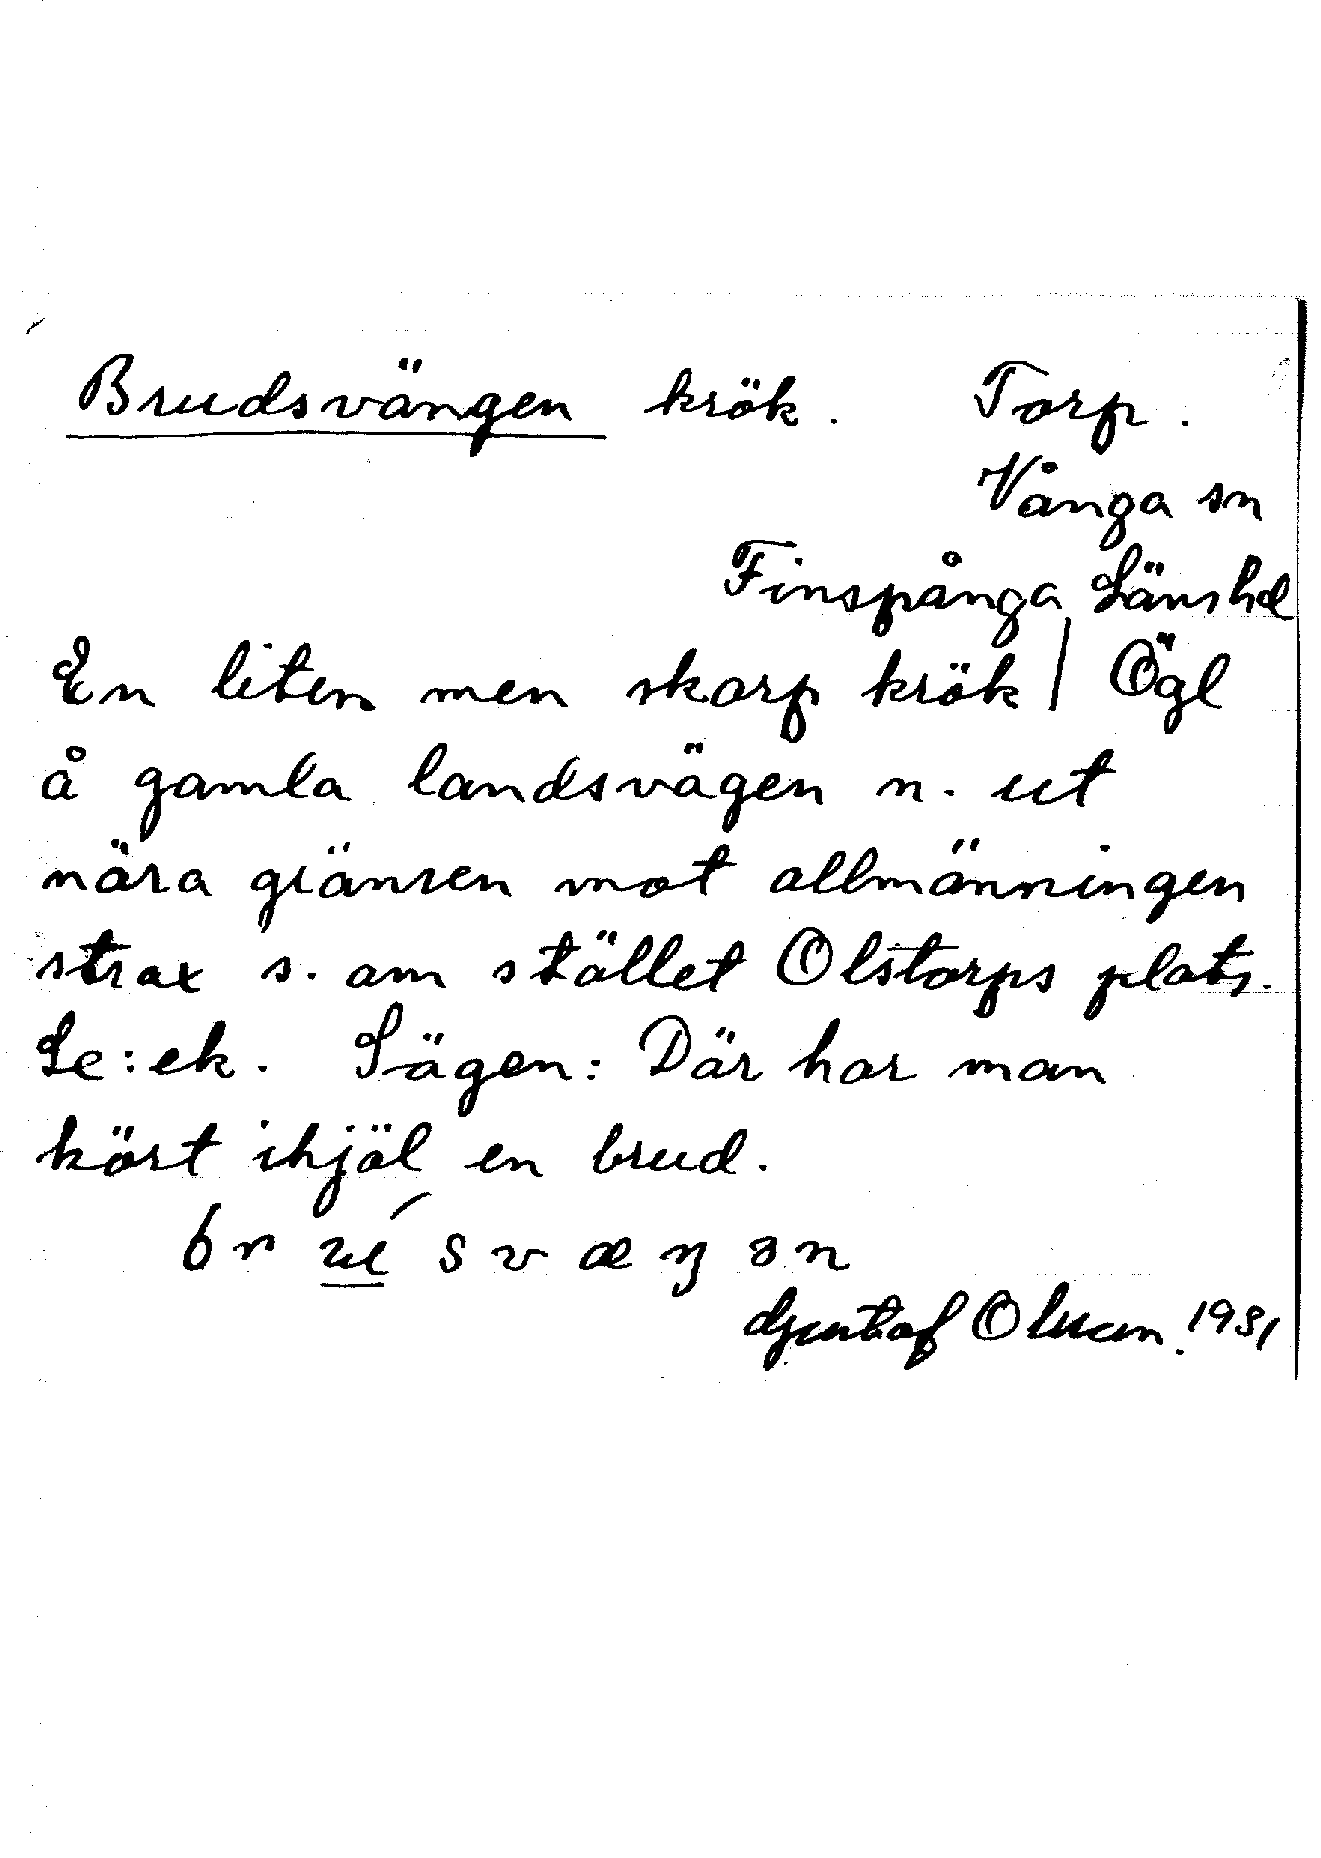 Brudsvängen krök. Torp.
Vånga sn
Finspånga Länshd
En liten men skarp krök | Ögl
å gamla landsvägen n. ut
nära gränsen mot allmänningen
strax s. om stället Olstorps plats.
Se: ek. Sägen: Där har man
kört ihjäl en brud.
br ué s v æ ŋ ə n
Gustaf Olsson. 1931